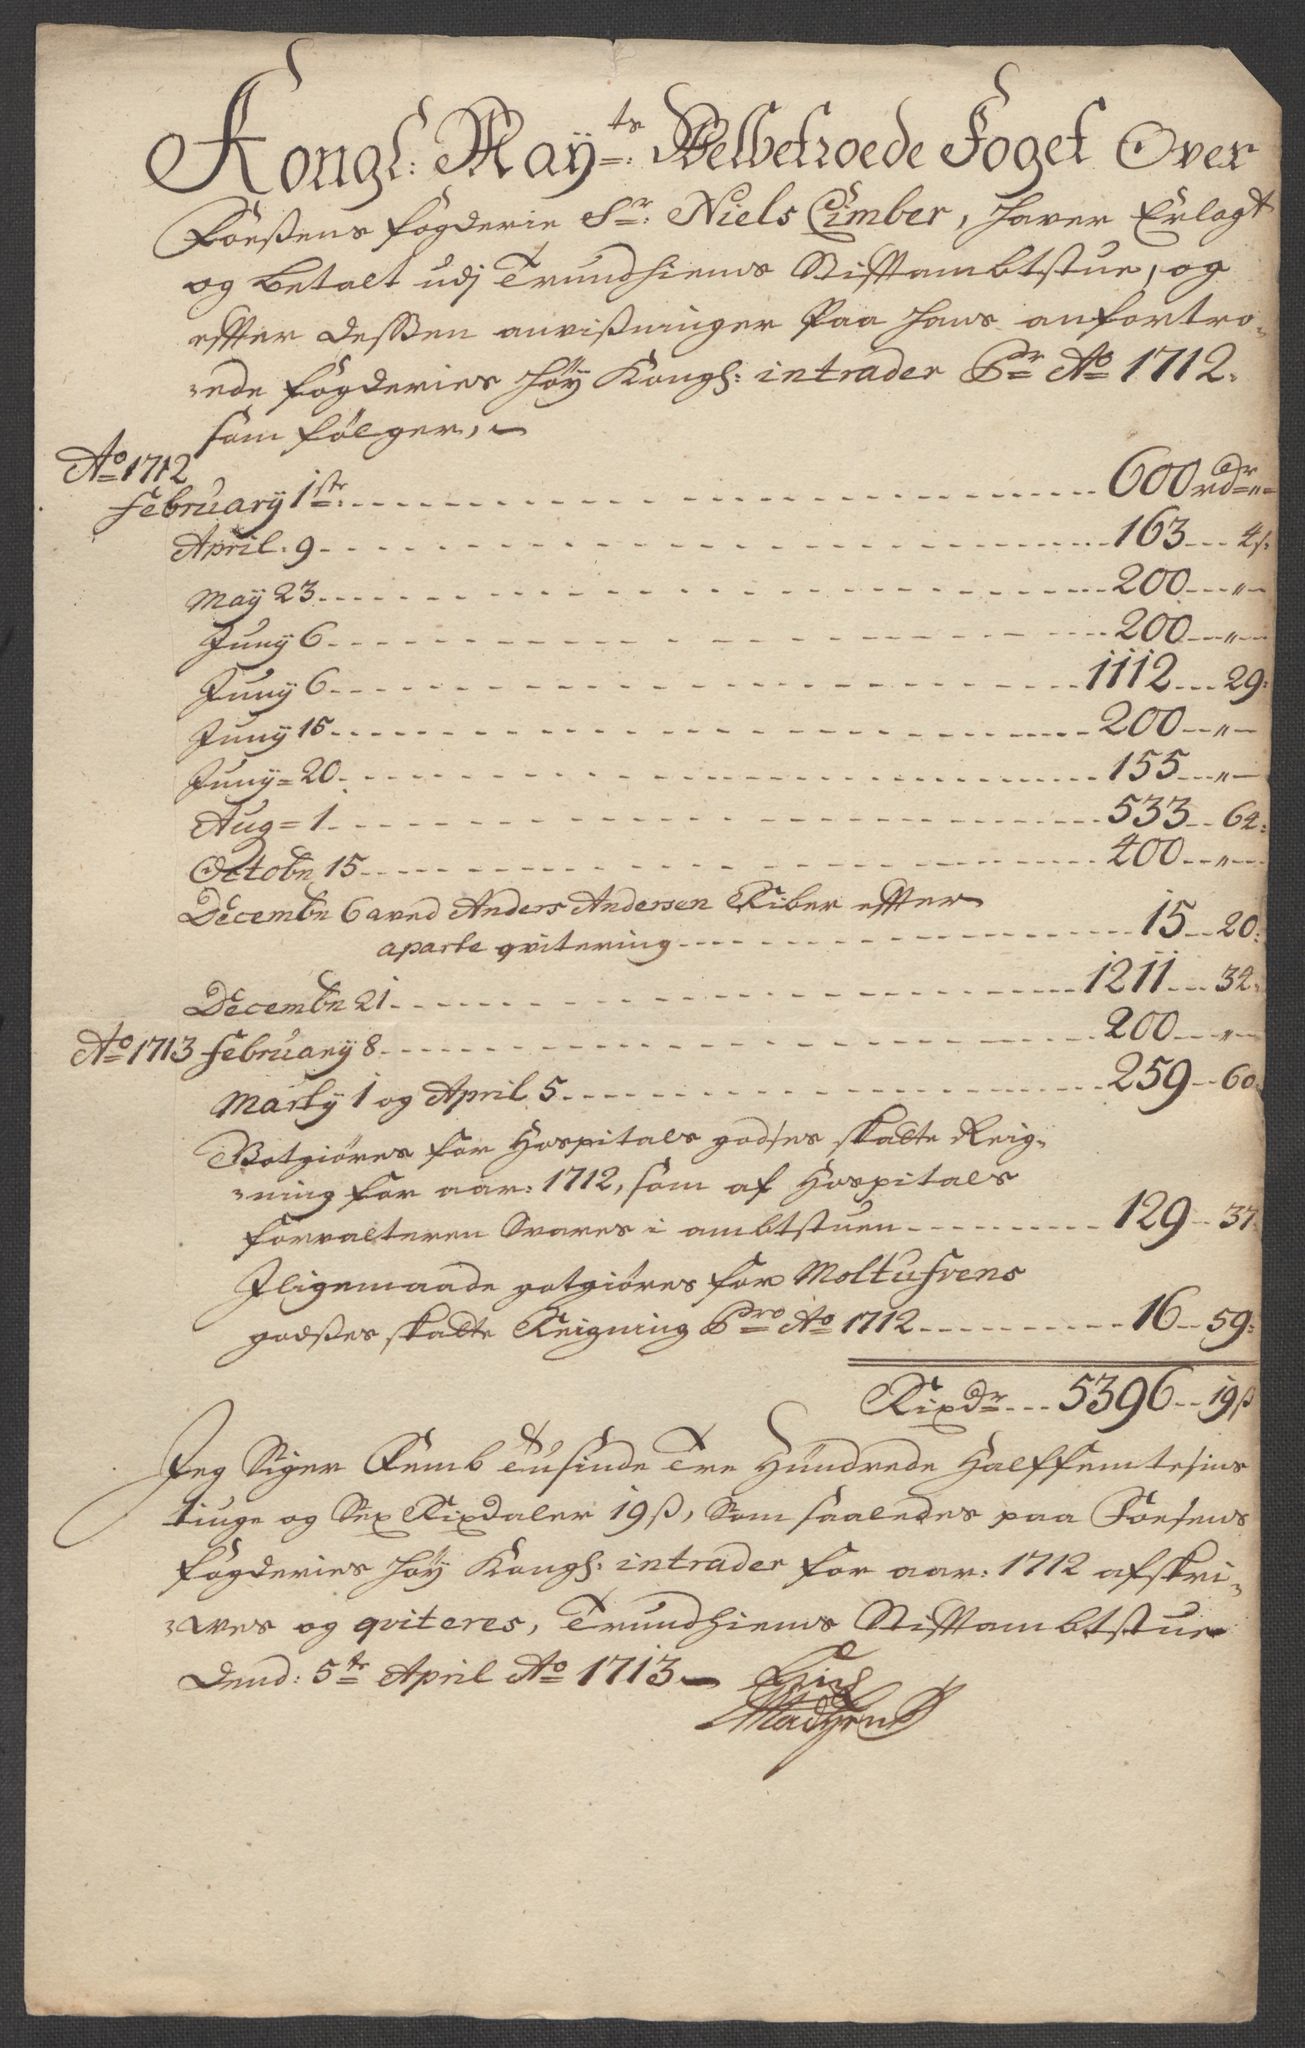 Kongl: May:ts Welbetroede Foget Over
Foeßens fogderie Sr: Niels Cimber, haver Erlagt
og betalt udj Trundhiems Stifftambtstue, og
effter deßßen anviißninger Paa hans anfortro-
-ede fogderies høy Kongl: intrader Pr Ao 1712.
som følger,
Ao 1712
February 1ste: 600 rdr "
April. 9 163 4s:
May 23 200 "
Juny 6 200 "
Juny 6 1112 29:
Juny 15 200 "
Juny = 20 155 "
Aug = 1 533 64:
Octobr 15 400 "
Decembr 6 aved Anders Andersen Riber effter
aparte qvitering 15 20:
Decembr 21 1211 32:
Ao 1713 February 8 200 "
Marty 1 og April 5 259 60:
Gotgiøres for Hospitals godses skatte Reig-
-ning for aar: 1712, som af Hospitals
forvalteren Svares i ambtstuen 129 37:
Iligemaade gotgiøres for Moltufrens
godßes skatte Reigning Pro Ao 1712 16 59:
Rixdr 5396 19ß
Jeg Siger Femb Tusinde Tre Hundrede Halffemtesins
tiuge og Sex Rixdaler 19 ß, Som saaledes paa Foesens
fogderies høy Kongl: intrader for aar: 1712 afskri-
-wes og qviteres, Trundhiems Stifftambtstue
Dend: 5te April Ao 1713